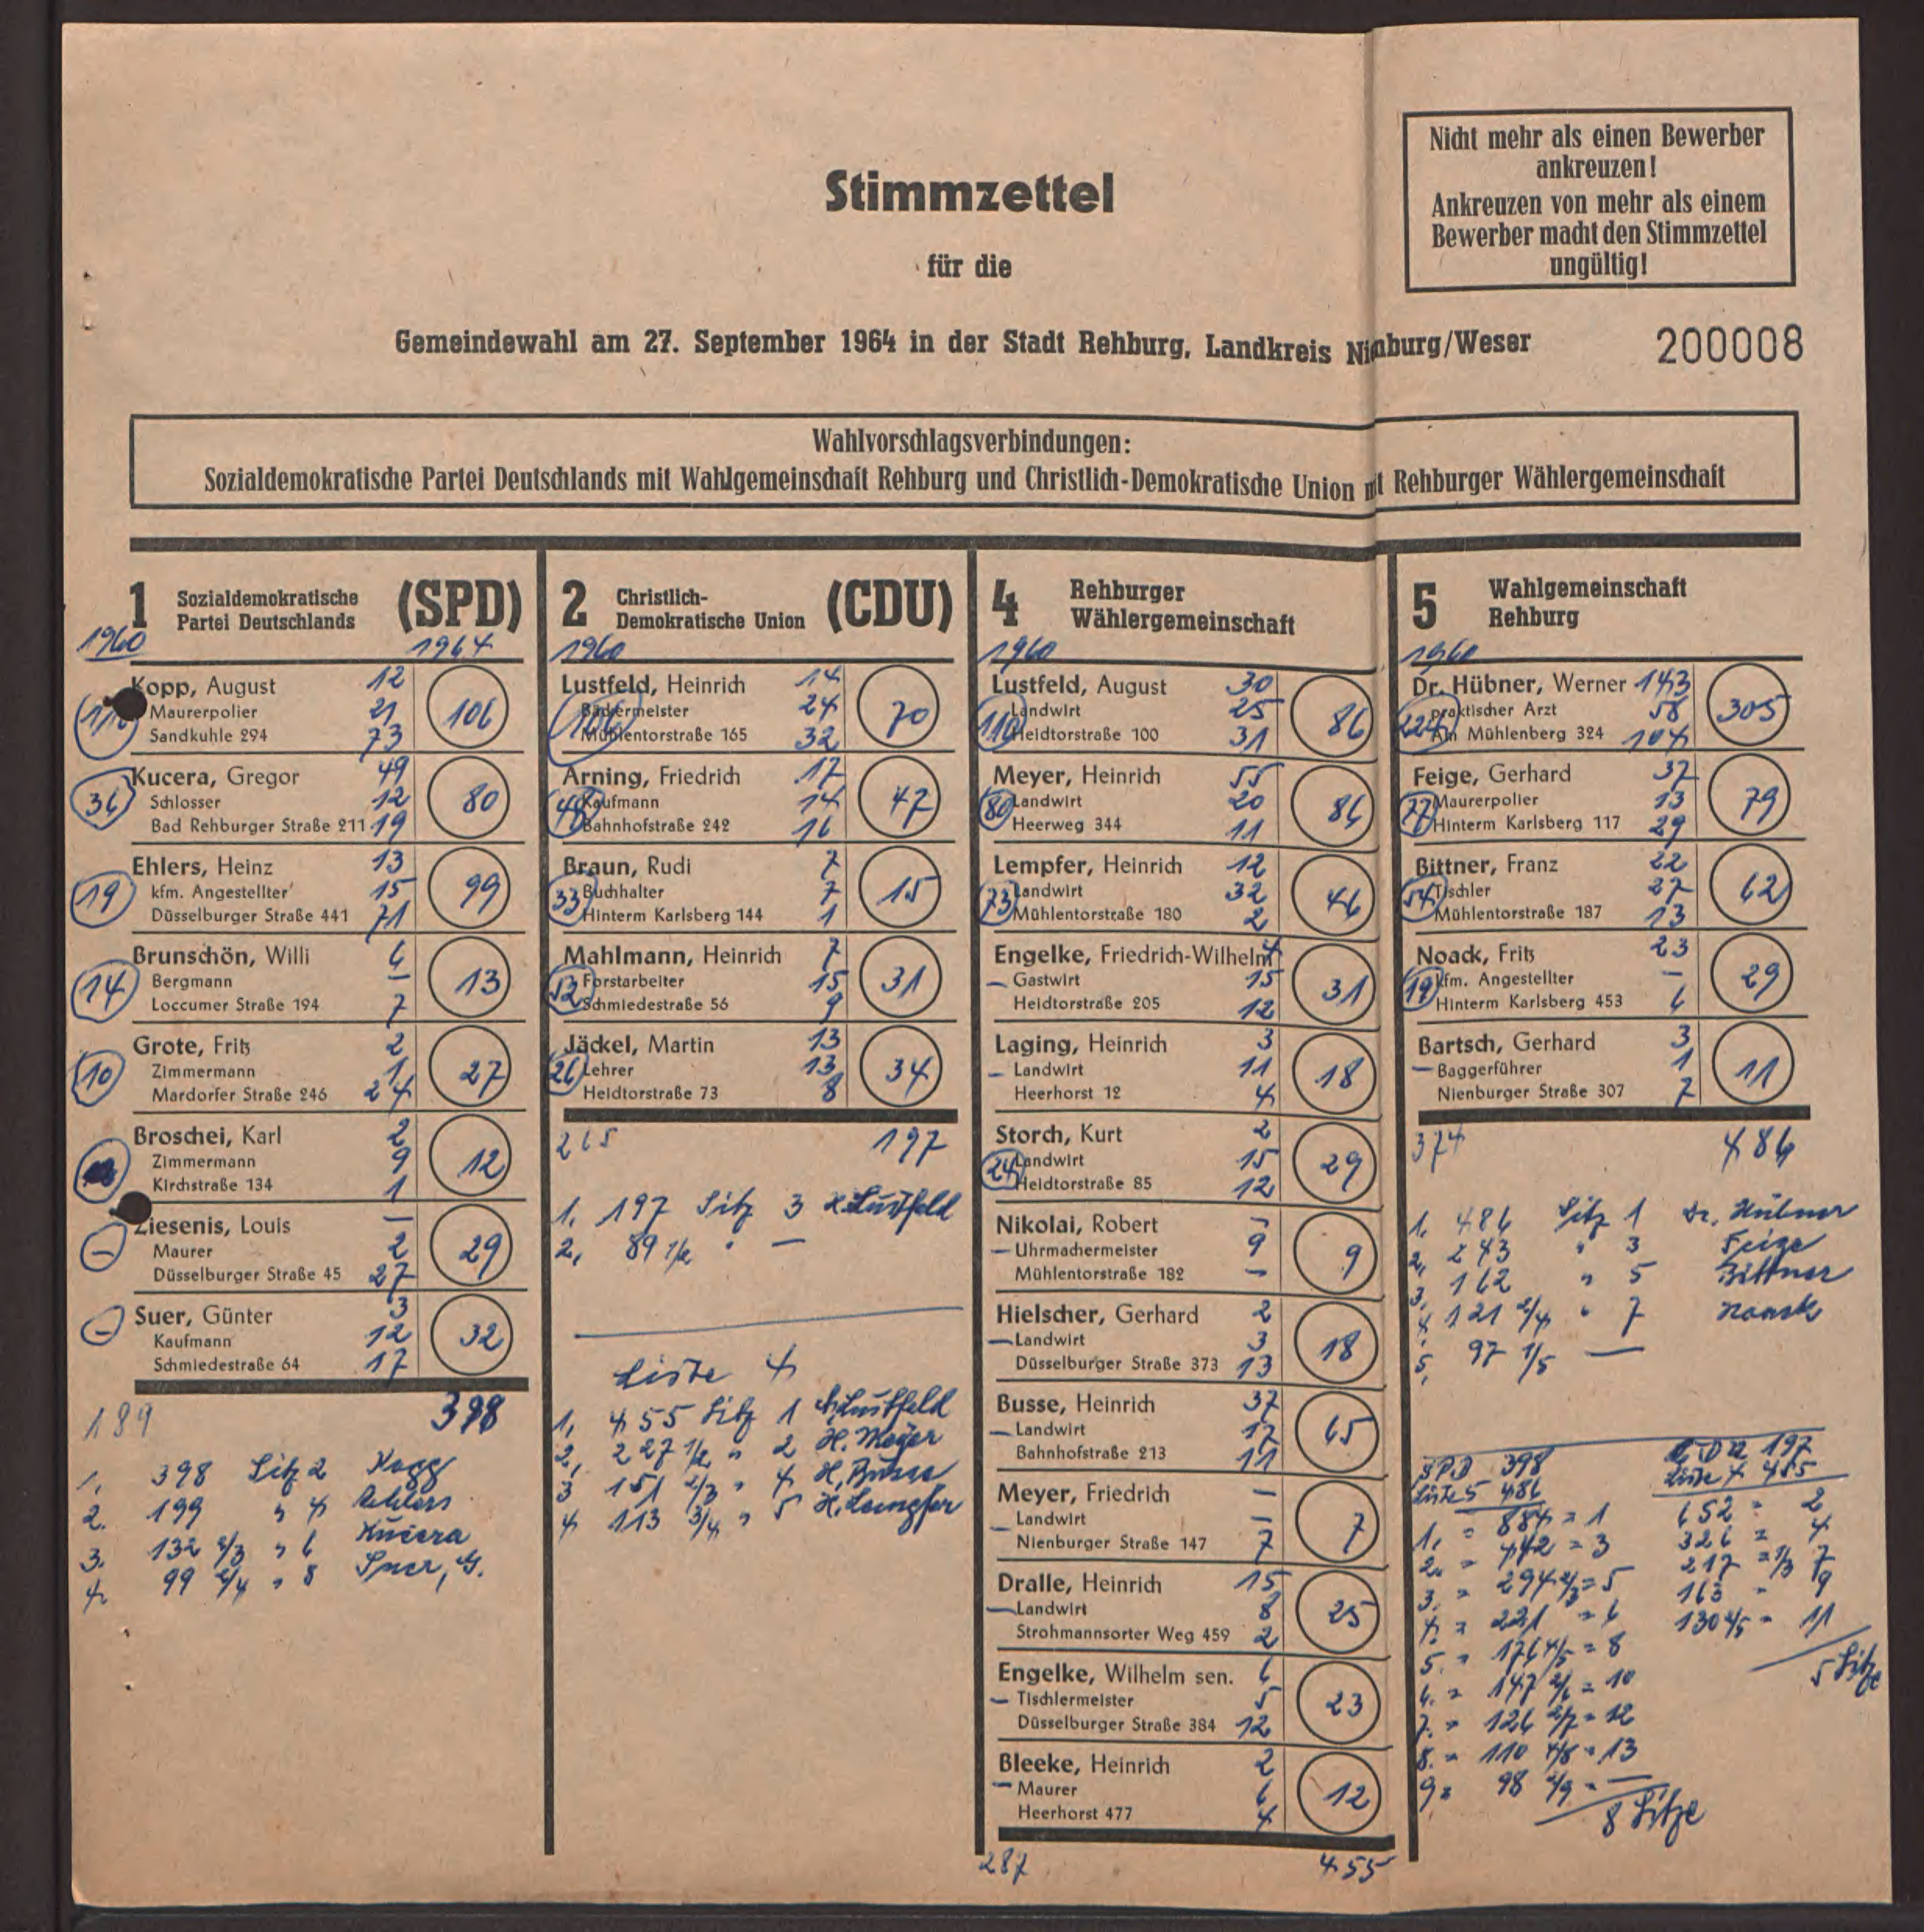 Nicht mehr als einen Bewerber
ankreuzen!
Ankreuzen von mehr als einem
Bewerber macht den Stimmzettel
ungültig!
Stimmzettel
für die
Gemeindewahl am 27. September 1964 in der Stadt Rehburg, Landkreis Nienburg/Weser
200008
Wahlvorschlagsverbindungen:
Sozialdemokratische Partei Deutschlands mit Wahlgemeinschaft Rehburg und Christlich-Demokratische Union mit Rehburger Wählergemeinschaft
1 Sozialdemokratische (SPD)
Partei Deutschlands
1960 1964
Kopp, August 12
Maurerpolier 21 106
Sandkuhle 294 73
Kucera, Gregor 49
36 Schlosser 12 80
Bad Rehburger Straße 211 19
Ehlers, Heinz 13
19 kfm. Angestellter 15 99
Düsselburger Straße 441 71
Brunschön, Willi 6
14 Bergmann – 13
Loccumer Straße 194 7
Grote, Fritz 2
10 Zimmermann 1 27
Mardorfer Straße 246 24
Broschei, Karl 2
Zimmermann 9 12
Kirchstraße 134 1
Ziesenis, Louis –
– Maurer 2 29
Düsselburger Straße 45 27
Suer, Günter 3
– Kaufmann 12 32
Schmiedestraße 64 17
189 398
1. 398 Sitz 2 Kopp
2. 199 " 4 Ehlers
3. 132 2/3 " 6 Kucera
4. 99 2/4 " 8 Suer, G.
2 Christlich- (CDU)
Demokratische Union
1960
Lustfeld, Heinrich 14
106 Bäckermeister 24 70
Mühlentorstraße 165 32
Arning, Friedrich 17
48 Kaufmann 14 47
Bahnhofstraße 242 16
Braun, Rudi 7
33 Buchhalter 7 15
Hinterm Karlsberg 144 1
Mahlmann, Heinrich 7
52 Forstarbeiter 15 31
Schmiedestraße 56 9
Jäckel, Martin 13
26 Lehrer 13 34
Heidtorstraße 73 8
265 197
1. 197 Sitz 3 H. Lustfeld
2. 89 1/2 " –
Liste 4
1. 455 Sitz 1 A. Lustfeld
2. 227 1/2 " 2 H. Meyer
3 151 2/3 " 4 H. Busse
4 113 3/4 " 5 H. Lempfer
4 Rehburger
Wählergemeinschaft
1960
Lustfeld, August 30
110 Landwirt 25 86
Heidtorstraße 100 31
Meyer, Heinrich 55
80 Landwirt 20 86
Heerweg 344 11
Lempfer, Heinrich 12
73 Landwirt 32 46
Mühlentorstraße 180 2
Engelke, Friedrich-Wilhelm 4
– Gastwirt 15 31
Heidtorstraße 205 12
Laging, Heinrich 3
– Landwirt 11 18
Heerhorst 12 4
Storch, Kurt 2
24 Landwirt 15 29
Heidtorstraße 85 12
Nikolai, Robert –
– Uhrmachermeister 9 9
Mühlentorstraße 182 –
Hielscher, Gerhard 2
– Landwirt 3 18
Düsselburger Straße 373 13
Busse, Heinrich 37
– Landwirt 17 65
Bahnhofstraße 213 11
Meyer, Friedrich –
– Landwirt – 7
Nienburger Straße 147 7
Dralle, Heinrich 15
– Landwirt 8 25
Strohmannsorter Weg 459 2
Engelke, Wilhelm sen. 6
– Tischlermeister 5 23
Düsselburger Straße 384 12
Bleeke, Heinrich 2
– Maurer 6 12
Heerhorst 477 4
287 455
5 Wahlgemeinschaft
Rehburg
1960
Dr. Hübner, Werner 143
224 praktischer Arzt 58 305
Am Mühlenberg 324 104
Feige, Gerhard 37
77 Maurerpolier 13 79
Hinterm Karlsberg 117 29
Bittner, Franz 22
54 Tischler 27 62
Mühlentorstraße 187 13
Noack, Fritz 23
19 kfm. Angestellter – 29
Hinterm Karlsberg 453 6
Bartsch, Gerhard 3
– Baggerführer 1 11
Nienburger Straße 307 7
374 486
1. 486 Sitz 1 Dr. Hübner
2. 243 " 3 Feige
3. 162 " 5 Bittner
4. 121 2/4 " 7 Noack
5. 97 1/5 –
SPD 398
Liste 5 486
1. = 884 = 1
2. = 442 = 3
3. = 294 2/3 = 5
4. = 221 = 6
5. = 176 4/5 = 8
6. = 147 2/6 = 10
7. = 126 2/7 = 12
8. = 110 4/8 = 13
9 = 98 2/9 = –
8 Sitze
CDU 197
Liste 4 455
652 = 2
326 = 4
217 = 1/3 7
163 = 9
130 4/5 = 11
5 Sitze